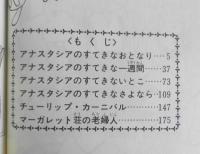 〈もくじ〉
アナスタシアのすてきなおとなり……5
アナスタシアのすてきな一週間……37
アナスタシアのすてきないとこ……73
アナスタシアのすてきなさよなら……109
チューリップ・カーニバル……147
マーガレット荘の老婦人……175